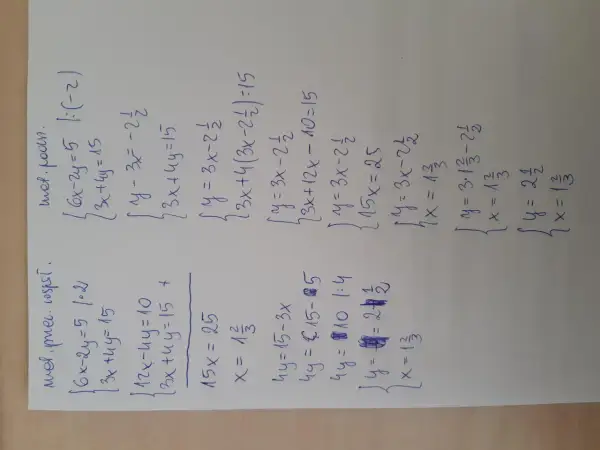 met. przec. wspsł.
{6x-2y=5 |·2
{3x+4y=15
{12x-4y=10
{3x+4y=15 +
15x=25
x=1 2/3
4y=15-3x
4y=15-5
4y=10 |:4
{y=2 1/2
{x=1 2/3
met. podst.
{6x-2y=5 |:(-2)
{3x+4y=15
{y-3x=-2 1/2
{3x+4y=15
{y=3x-2 1/2
{3x+4(3x-2 1/2)=15
{y=3x-2 1/2
{3x+12x-10=15
{y=3x-2 1/2
{15x=25
{y=3x-2 1/2
{x=1 2/3
{y=3·1 2/3-2 1/2
{x=1 2/3
{y=2 1/2
{x=1 2/3